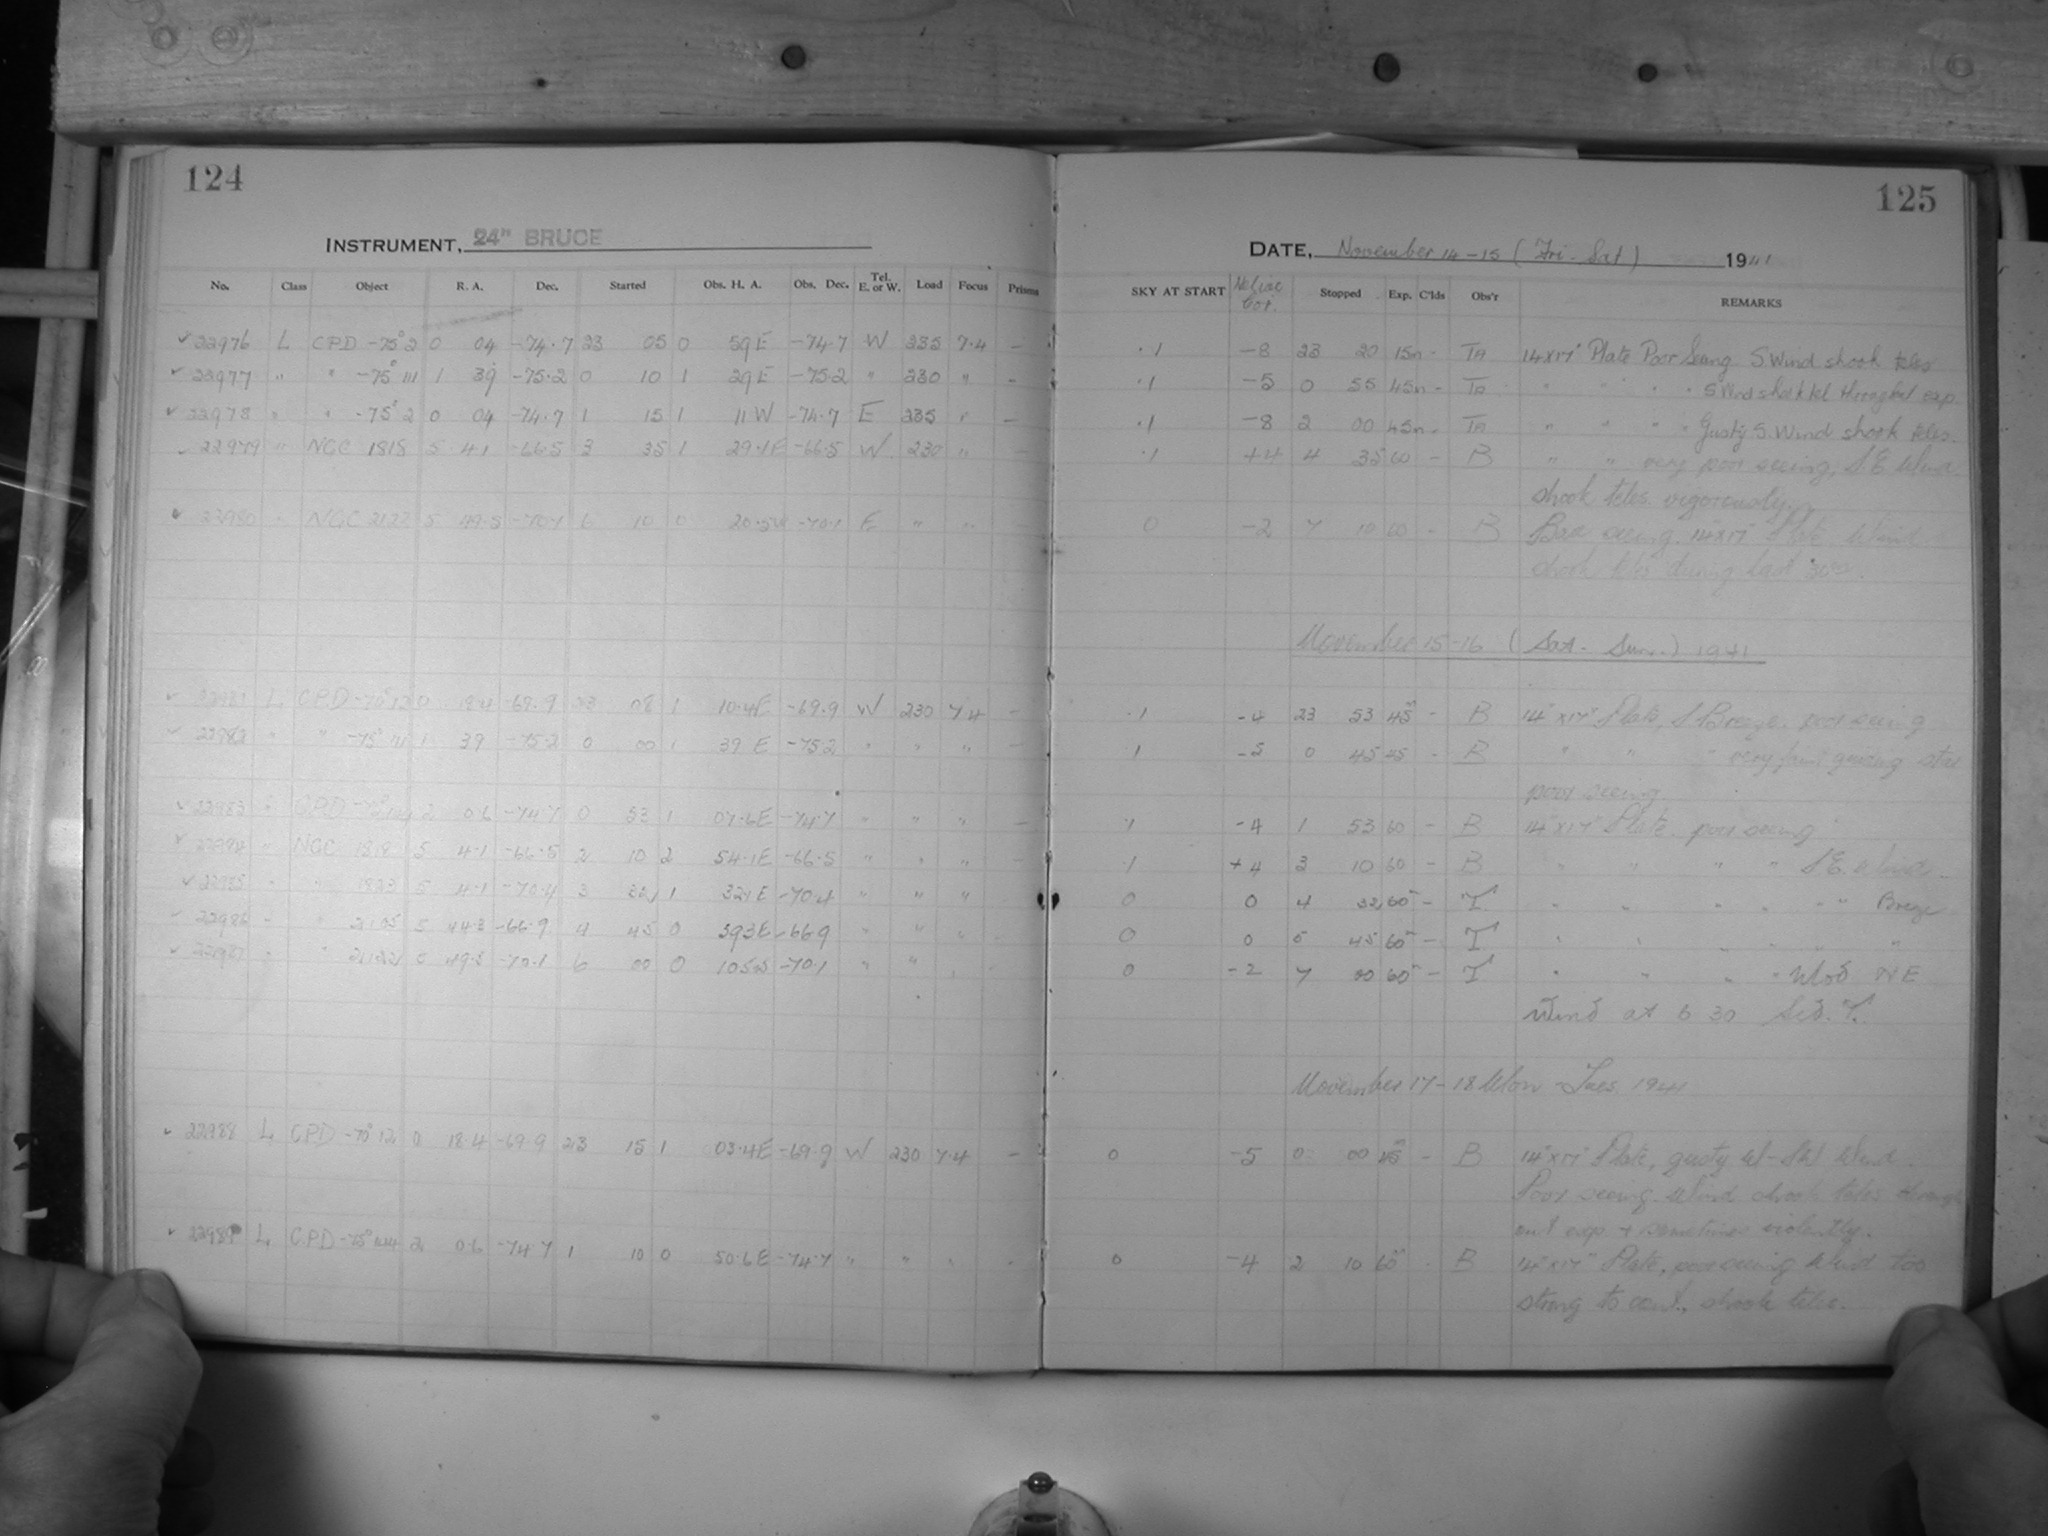 124
INSTRUMENT, 24" BRUCE
No. Class Object R. A. Dec. Started Obs. H. A. Obs. Dec. Tel. E. or W. Load Focus Prisms
22976 L CPD -75° 2 0 04 -74.7 23 05 0 59E -74.7 W 235 7.4 -
22977 " " -75° 111 1 39 -75.2 0 10 1 29E -75.2 " 230 " -
22978 " " -75° 2 0 04 -74.7 1 15 1 11W -74.7 E 235 " -
22979 " NGC 1818 5 4.1 -66.5 3 35 1 29.1E -66.5 W 230 " -
22980 " NGC 2122 5 49.5 -70.1 6 10 0 20.5W -70.1 E " "
22981 L CPD 0 18.4 -69.9 23 08 1 10.4E -69.9 W 230 7.4 -
22982 " " -75° 111 1 39 -75.2 0 00 1 39E -75.2 " " " -
22983 CPD 2 0.6 -74.7 0 53 1 07.6E -74.7 " " " -
22984 " NGC 1818 5 4.1 -66.5 2 10 2 54.1E -66.5 " " " -
22985 " " 5 4.1 -70.4 3 32 1 32.1E -70.4 " " "
22986 " " 5 44.3 -66.9 4 45 0 59.3E -66.9 " " "
22987 " " 2122 5 49.5 -70.1 6 00 0 10.5W -70.1 " "
22988 L CPD -70° 12 0 18.4 -69.9 23 15 1 03.4E -69.9 W 230 7.4 -
22989 L CPD 2 0.6 -74.7 1 10 0 50.6E -74.7 " "
125
DATE, November 14-15 (Fri - Sat) 1941
SKY AT START Stopped Exp. C'lds Obs'r REMARKS
.1 -8 23 20 15m - TA 14x17" Plate Poor Seeing S Wind shook teles
.1 -5 0 55 45m - TA " " " " S Wind shook tel throughout exp.
.1 -8 2 00 45m - TA " " " " Gusty S. Wind shook teles.
.1 +4 4 35 60 - B " " very poor seeing, S.E. Wind
shook teles. vigorously.
0 -2 7 10 60 - B seeing, 14"x17" Plate Wind
shook teles during last
November 15-16 (Sat - Sun.) 1941
.1 -4 23 53 45 - B 14"x17" Plate, S Breeze. poor seeing
.1 -5 0 45 45 - B " " " very faint guiding star
poor seeing
.1 -4 1 53 60 - B 14"x17" Plate. poor seeing
.1 +4 3 10 60 - B " " " " S.E. Wind.
0 0 4 32 60 - T " " " " " " Breeze
0 0 5 45 60 - T " " " " " " "
0 -2 7 00 60 - T " " " " Mod NE
Wind at 6 30 Sid. T.
November 17-18 Mon - Tues 1941
0 -5 0 00 45 - B 14"x17" Plate, gusty W-SW Wind.
Poor seeing. Wind shook teles through
out exp. + sometimes violently.
0 -4 2 10 60 - B 14"x17" Plate, poor seeing Wind too
strong to cont., shook teles.